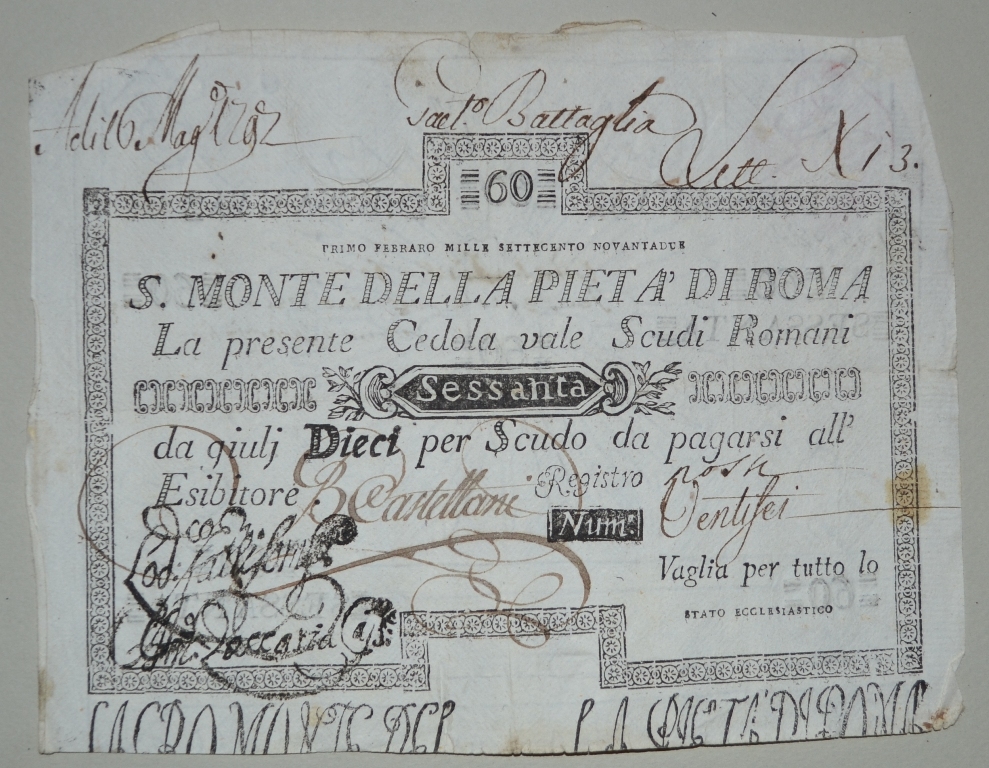 Adi 16 Magº 1792 Gaetº Battaglia Lett. X 13.
60
PRIMO FEBRARO MILLE SETTECENTO NOVANTADUE
S. MONTE DELLA PIETA' DI ROMA
La presente Cedola vale Scudi Romani
Sessanta
da giulj Dieci per Scudo da pagarsi all'
Esibitore. B Castellani Registro
Num. Ventisei
Vaglia per tutto lo
STATO ECCLESIASTICO
SACRO MONTE DEL LA PIETA' DI ROMA